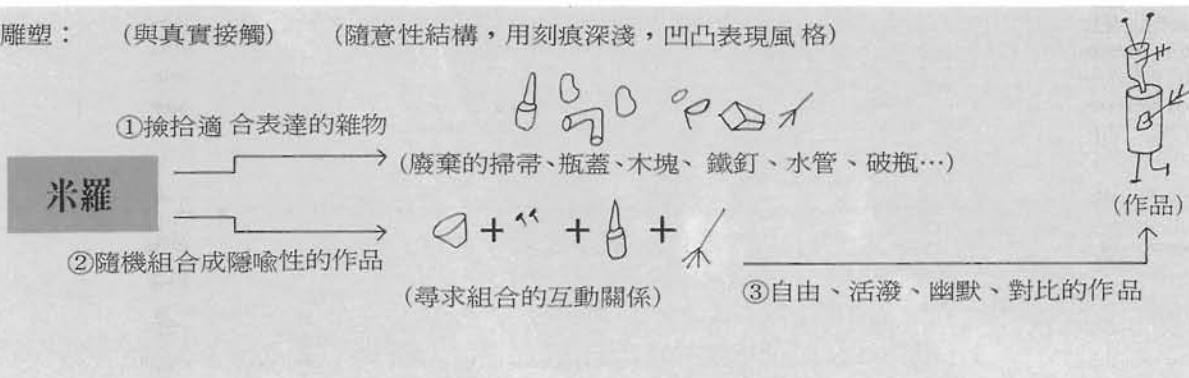 雕塑： （與真實接觸） （隨意性結構，用刻痕深淺，凹凸表現風格）
①撿拾適合表達的雜物
(廢棄的掃帚、瓶蓋、木塊、鐵釘、水管、破瓶…)
米羅
(作品)
②隨機組合成隱喻性的作品
(尋求組合的互動關係)
③自由、活潑、幽默、對比的作品